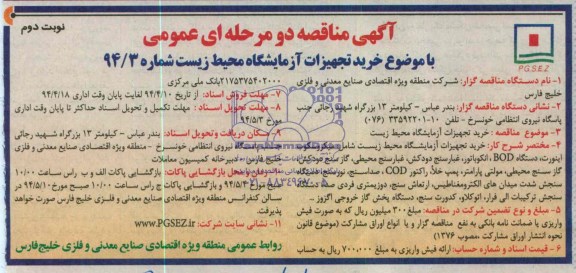 نوبت دوم
آگهی مناقصه دو مرحله ای عمومی
با موضوع خرید تجهیزات آزمایشگاه محیط زیست شماره ۹۴/۳
P.G.S.E.Z
۱- نام دستگاه مناقصه گزار: شرکت منطقه ویژه اقتصادی صنایع معدنی و فلزی خلیج فارس
۲- نشانی دستگاه مناقصه گزار: بندر عباس - کیلومتر ۱۳ بزرگراه شهید رجائی جنب پاسگاه نیروی انتظامی خونسرخ - تلفن ۱۰-۳۳۵۹۲۲۰۱ (۰۷۶)
۳- موضوع مناقصه: خرید تجهیزات آزمایشگاه محیط زیست
۴- مختصر شرح کار: خرید تجهیزات آزمایشگاه محیط زیست شامل
اپتورت، دستگاه BOD، انکوباتور، غبارسنج دودکش، غبارسنج محیطی، گاز سنج دودکش
گاز سنج محیطی، مولتی پارامتر، پمپ خلأ، راکتور COD، صداسنج،
سنجش شدت میدان های الکترومغناطیس، ارتعاش سنج، دوزیمتری فردی
سنجش ترکیبات آلی فرار، اتوکلاو، کدورت سنج، دستگاه پخش گاز خروجی اگزوز
۵- مبلغ و نوع تضمین شرکت در مناقصه: مبلغ ۳۰۰ میلیون ریال که به صورت فیش واریزی یا ضمانت نامه بانکی به نفع مناقصه گزار و یا انواع اوراق مشارکت (موضوع قانون نحوه انتشار اوراق مشارکت مصوب ۱۳۷۶)
۶- قیمت اسناد و شماره حساب: ارائه فیش واریزی به مبلغ ۷۰۰,۰۰۰ ریال به حساب
۲۱۷۵۳۷۵۴۰۲۰۰۰ بانک ملی مرکزی
۷- مهلت فروش اسناد: از تاریخ ۹۴/۴/۱۰ لغایت پایان وقت اداری ۹۴/۴/۱۸
۸- مهلت تحویل اسناد: مهلت تکمیل و تحویل اسناد حداکثر تا پایان وقت اداری مورخ ۹۴/۵/۳
۹- مکان دریافت و تحویل اسناد: بندر عباس - کیلومتر ۱۳ بزرگراه شهید رجائی
نیروی انتظامی خونسرخ - منطقه ویژه اقتصادی صنایع معدنی و فلزی خلیج فارس - دبیرخانه کمیسیون معاملات
بازگشایی پاکات: بازگشایی پاکات الف و ب راس ساعت ۱۰/۰۰
۹۴/۵/۴ و بازگشایی پاکات ج راس ساعت ۱۰/۰۰ صبح مورخ ۹۴/۵/۱۰ در سالن کنفرانس منطقه ویژه اقتصادی صنایع معدنی و فلزی خلیج فارس صورت خواهد پذیرفت.
۱۱- نشانی سایت شرکت: www.PGSEZ.ir
روابط عمومی منطقه ویژه اقتصادی صنایع معدنی و فلزی خلیج فارس